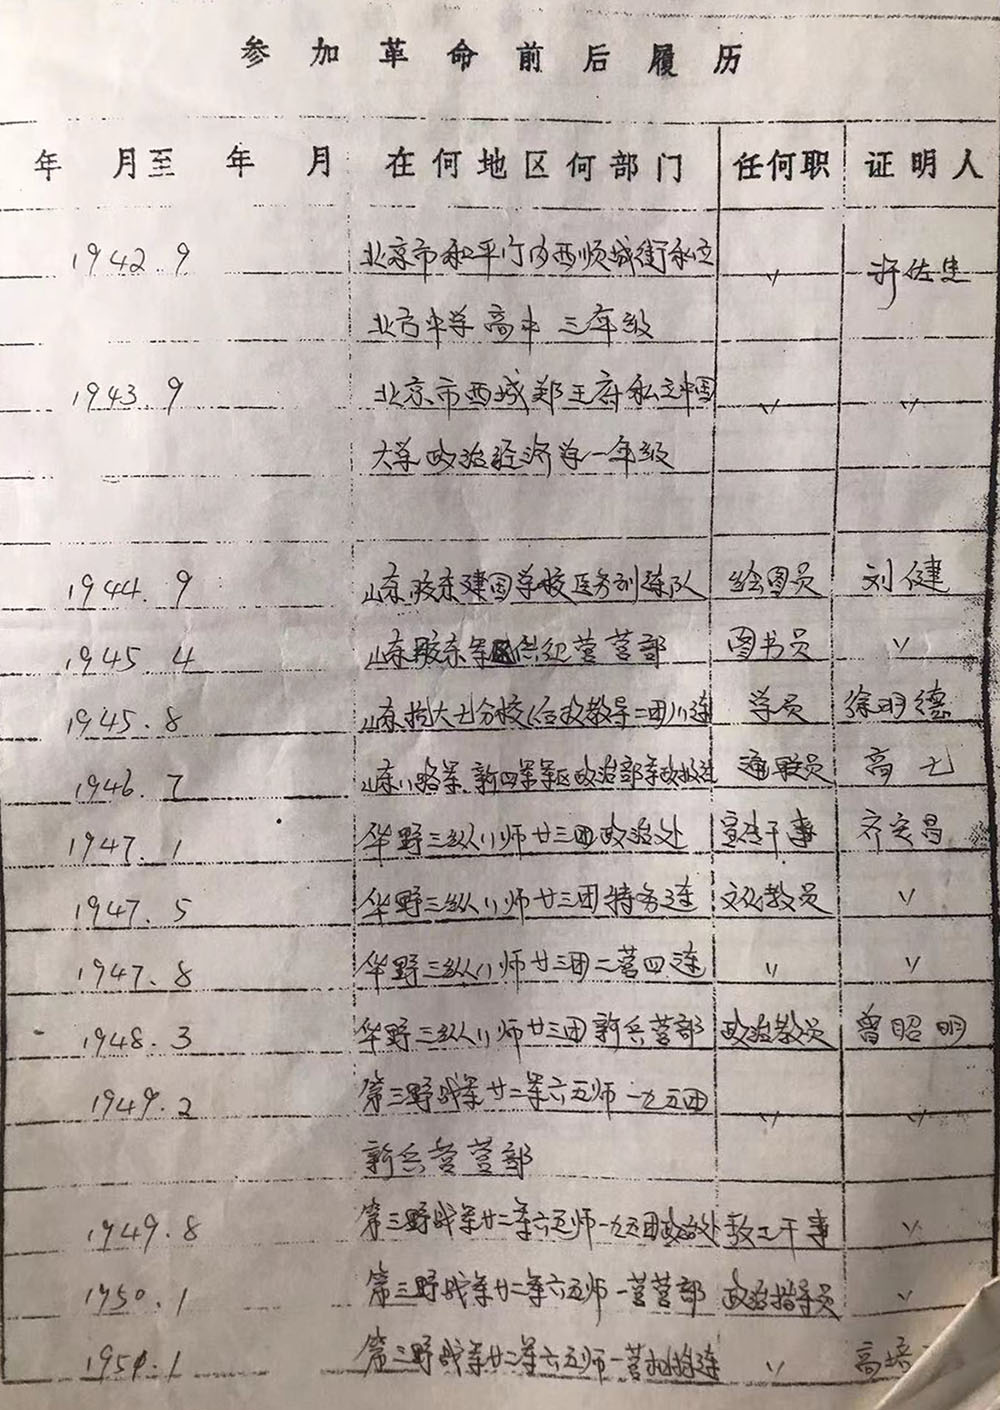 参加革命前后履历
年 月至 年 月 在何地区何部门 任何职 证明人
1942.9 北京市和平门内西顺城街私立 〃 许佐生
北方中学高中三年级
1943.9 北京市西城郑王府私立中国 〃 〃
大学政治经济学一年级
1944.9 山东胶东建国学校医务训练队 绘图员 刘健
1945.4 山东胶东军区供纪营营部 图书员 〃
1945.8 山东抗大七分校(后改教导二团)八连 学员 徐明德
1946.7 山东八路军、新四军军区政治部 员 高
1947.1 华野三纵八师廿三团政治处 宣传干事 齐定昌
1947.5 华野三纵八师廿三团特务连 文化教员 〃
1947.8 华野三纵八师廿三团二营四连 〃 〃
1948.3 华野三纵八师廿三团新兵营营部 政治教员 曾昭明
1949.2 第三野战军廿二军六五师一九五团 〃 〃
新兵营营部
1949.8 第三野战军廿二军六五师一九五团政治处 干事 〃
1950.1 第三野战军廿二军六五师一营营部 政治指导员 〃
1951.1 第三野战军廿二军六五师一营机枪连 〃 高培